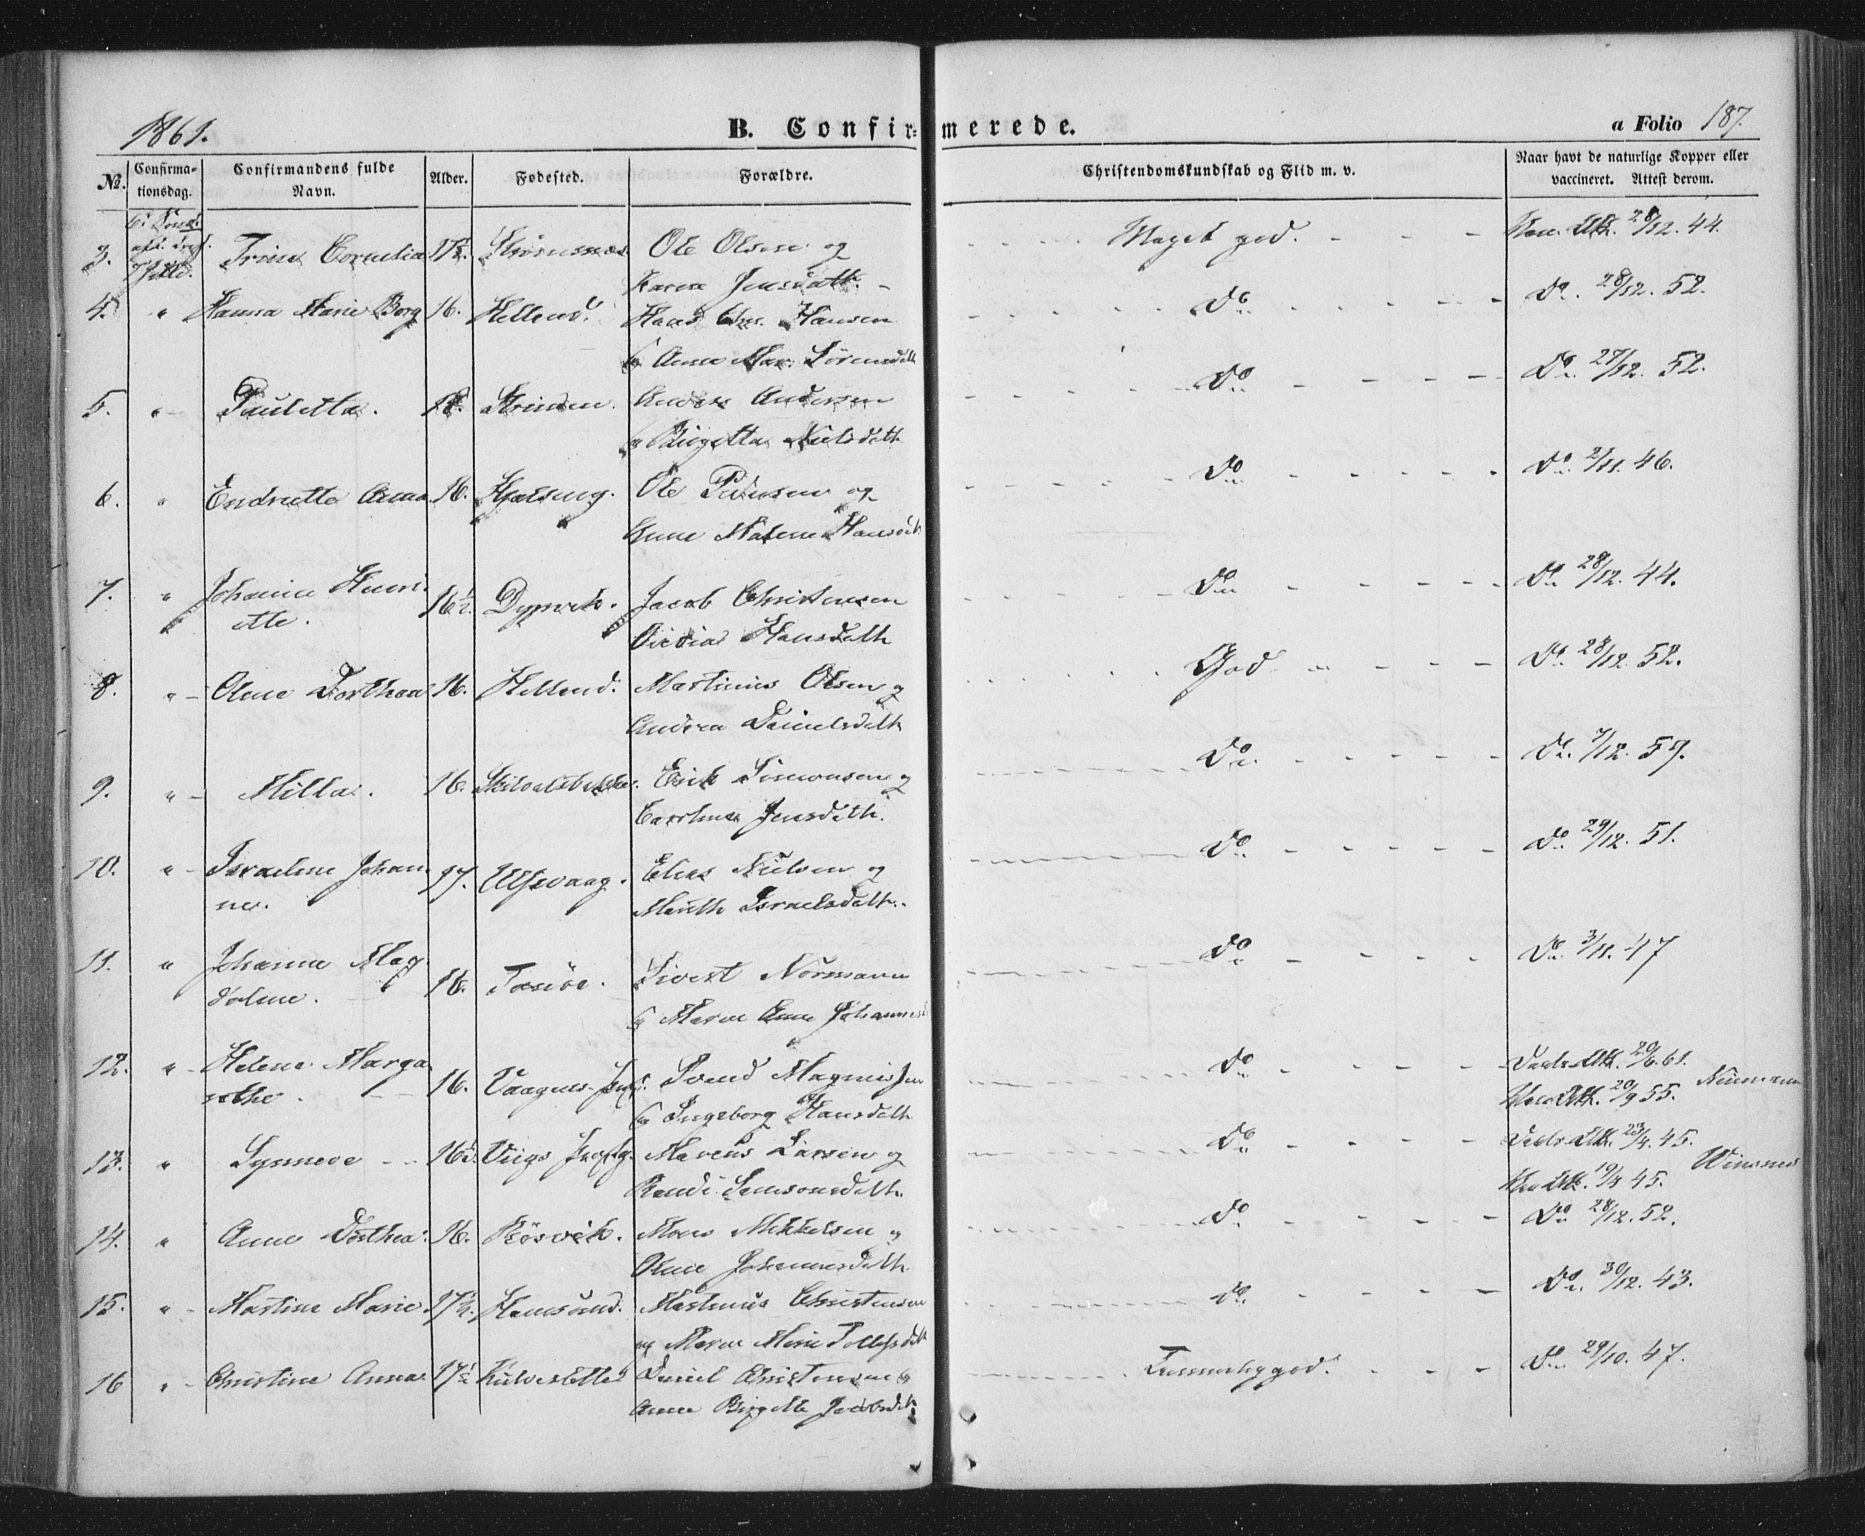 1861.
B. Confirmerede.
a Folio 187.
No.
Confirmationsdag.
Confirmandens fulde Navn.
Alder.
Fødested.
Forældre.
Christendomskundskab og Flid m. v.
Naar havt de naturlige Kopper eller vaccineret. Attest derom.
3. Trine Cornelia 17½ Ole Olsen og
Karen Jensdatt. Meget god. 28/12. 44.
4. " Hanna Marie Borg 16. Helland. Hans Chr. Hansen
og Anna Mar. Sörensdatt Do Do. 28/12. 52.
5. " Pauletta. 18. Anders Andersen
og Birgetta Nielsdatt Do Do. 27/12. 52.
6. " Endrette Anna 16. Ole Pedersen og
Anne Malene Hansdt Do Do. 2/11. 46.
7. " Johanna Henri
ette. 16½. Dypvik. Jacob Christensen
Hansdatt Do Do. 28/12. 44.
8. " Anne Dorthea 16. Helland. Martinus Olsen og
Andrea Danielsdatt God Do. 28/12. 52.
9. " Milla. 16. Skilvalsbakke. Erik Simonsen og
Jensdatt. Do Do. 7/12. 59.
10. " Israeline Johan
ne. 17. Ulfsvaag. Elias Nielsen og
Marith Israelsdatt. Do Do. 29/12. 51.
11. " Johanna Mag
dalene. 16. Taniöe. Sivert Normann
og Maren Anna Johannesd Do Do. 3/11. 47
12. " Helena Marga
rethe. 16. Svend Magnus
og Ingeborg Hansdatt Do 20/6. 61. Neumann
20/9 55.
13. " Synneve 16½ Marcus Larsen og
Randi Samsonsdatt. Do 23/4. 45. Winsnes
19/4 45.
14. " Anne Dorthea. 16. Rösvik. Mons Mikkelsen og
Anne Johannesdatt. Do Do 28/12. 52.
15. " Martine Marie 17½. Hamsund. Martinus Christensen
og Maren Marie Tollefsdatt Do Do. 30/12. 43.
16 " Christine Anna 17½ Kulvesletta Daniel Christensen og
Anna Birgitte Jacobsdatt Temmelig god. Do. 29/10. 47.